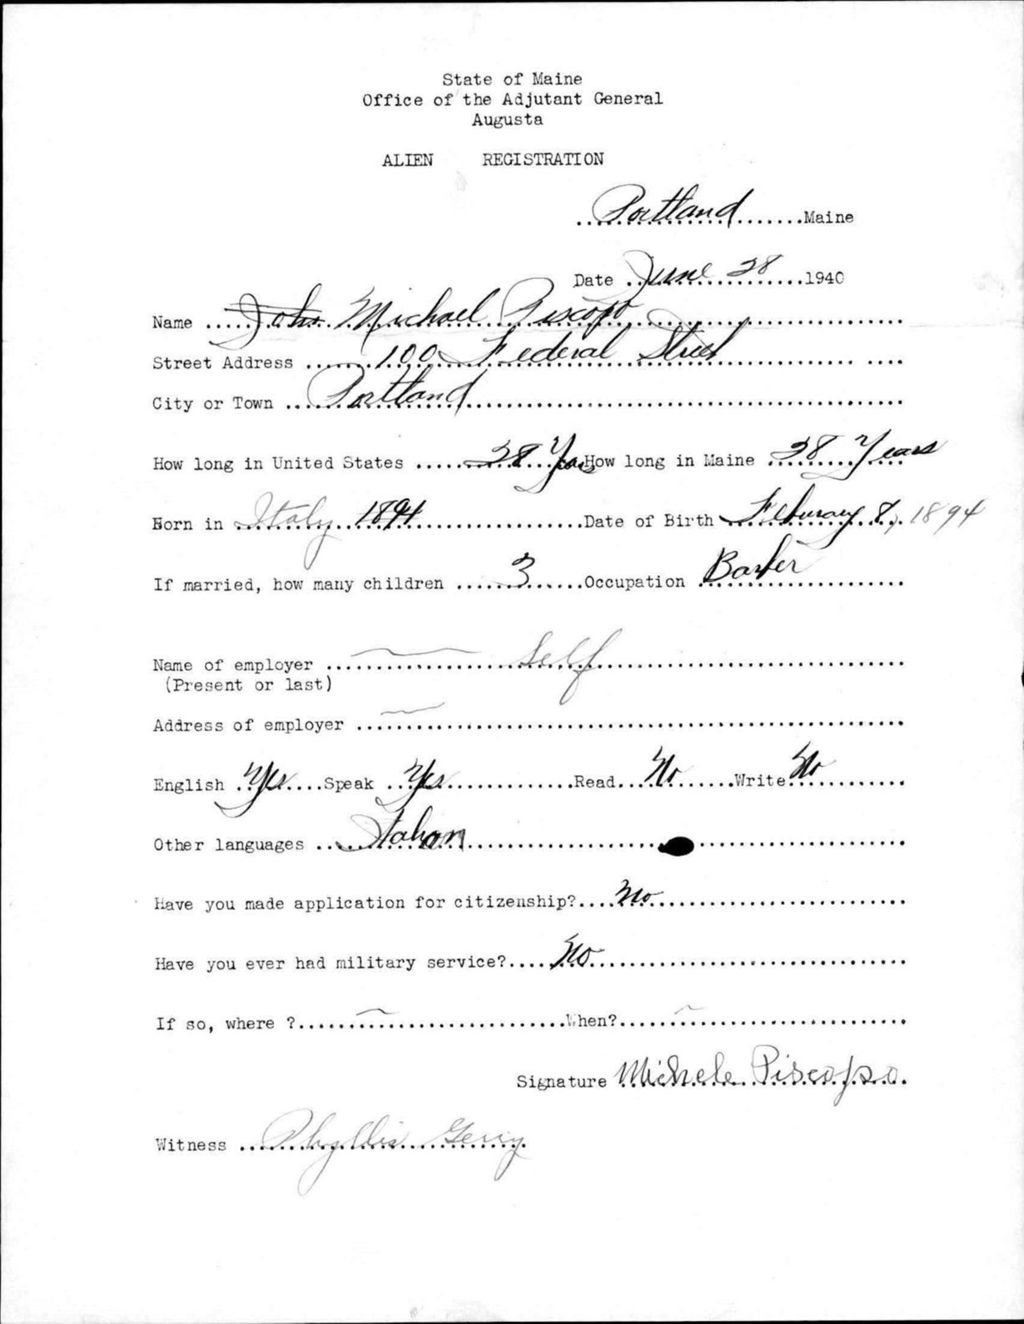 State of Maine
Office of the Adjutant General
Augusta
ALIEN REGISTRATION
Portland Maine
Date June 28 1940
Name John Michael Piscopo
Street Address 100 Federal Street
City or Town Portland
How long in United States 38 Years How long in Maine 38 Years
Born in Italy 1894 Date of Birth February 8, 1894
If married, how many children 3 Occupation Barber
Name of employer Self
(Present or last)
Address of employer
English Yes Speak Yes Read No Write No
Other languages Italian
Have you made application for citizenship? No
Have you ever had military service? No
If so, where ? When?
Signature Michele Piscopo.
Witness Phyllis Gerry